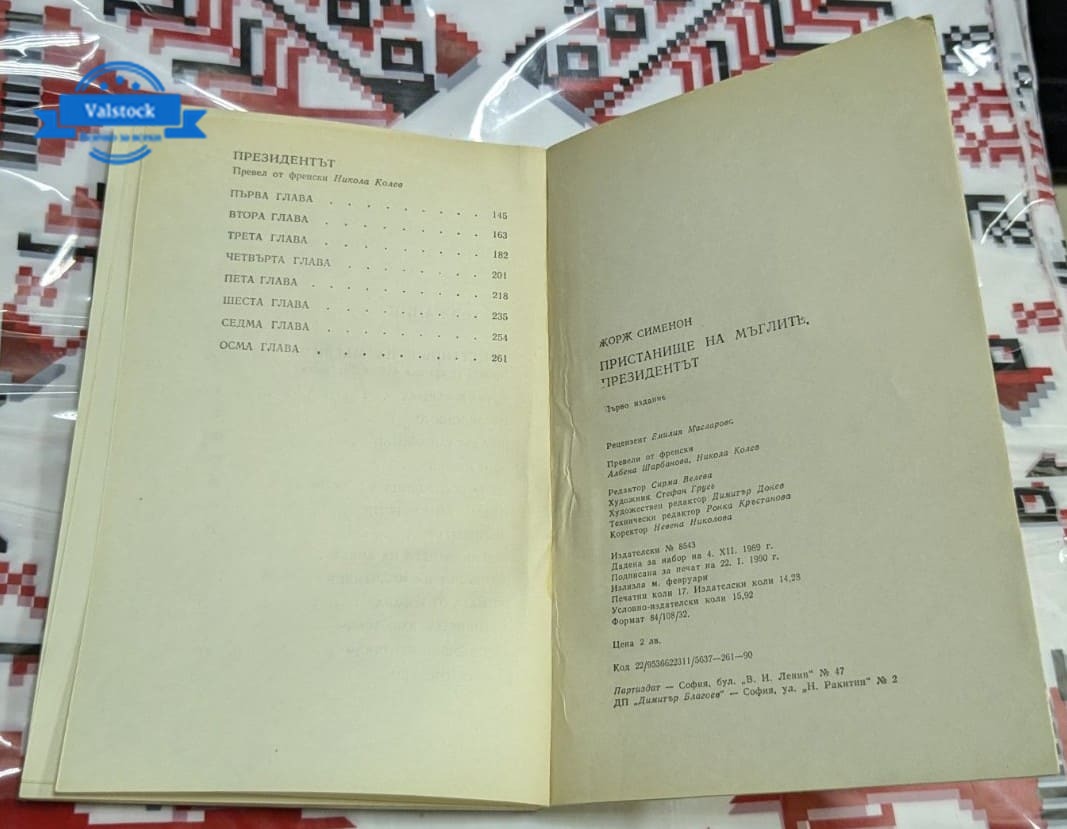 Valstock
Всичко за всеки
ПРЕЗИДЕНТЪТ
Превел от френски Никола Колев
ПЪРВА ГЛАВА . . . . . . . . 145
ВТОРА ГЛАВА . . . . . . . . 163
ТРЕТА ГЛАВА . . . . . . . . 182
ЧЕТВЪРТА ГЛАВА . . . . . . . 201
ПЕТА ГЛАВА . . . . . . . . 218
ШЕСТА ГЛАВА . . . . . . . . 235
СЕДМА ГЛАВА . . . . . . . . 254
ОСМА ГЛАВА . . . . . . . . 261
ЖОРЖ СИМЕНОН
ПРИСТАНИЩЕ НА МЪГЛИТЕ.
ПРЕЗИДЕНТЪТ
Първо издание
Рецензент Емилия Масларова
Превели от френски
Албена Шарбанова, Никола Колев
Редактор Сирма Велева
Художник Стефан Груев
Художествен редактор Димитър Донев
Технически редактор Ронка Кръстанова
Коректор Невена Николова
Издателски № 8543
Дадена за набор на 4. XII. 1989 г.
Подписана за печат на 22. I. 1990 г.
Излязла м. февруари
Печатни коли 17. Издателски коли 14,28
Условно-издателски коли 15,92
Формат 84/108/32.
Цена 2 лв.
Код 22/9536622311/5637—261—90
Партиздат — София, бул. „В. И. Ленин“ № 47
ДП „Димитър Благоев“ — София, ул. „Н. Ракитин“ № 2